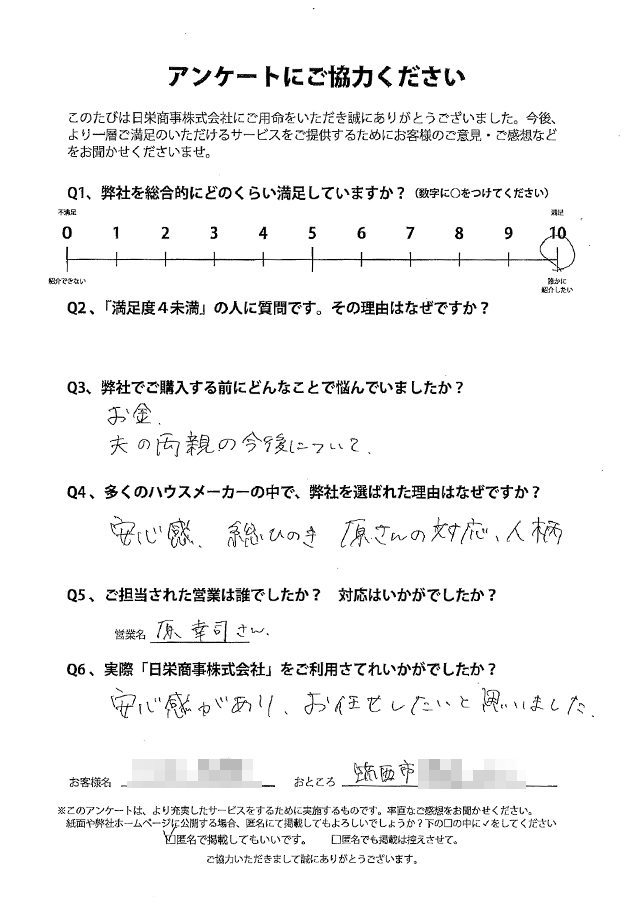 アンケートにご協力ください
このたびは日栄商事株式会社にご用命をいただき誠にありがとうございました。今後、
より一層ご満足のいただけるサービスをご提供するためにお客様のご意見・ご感想など
をお聞かせくださいませ。
Q1、弊社を総合的にどのくらい満足していますか?(数字に○をつけてください)
不満足 満足
0 1 2 3 4 5 6 7 8 9 10
紹介できない 誰かに
紹介したい
Q2、「満足度4未満」の人に質問です。その理由はなぜですか?
Q3、弊社でご購入する前にどんなことで悩んでいましたか?
お金.
夫の両親の今後について.
Q4、多くのハウスメーカーの中で、弊社を選ばれた理由はなぜですか?
安心感、総ひのき 原さんの対応、人柄
Q5、ご担当された営業は誰でしたか? 対応はいかがでしたか?
営業名 原 幸司さん.
Q6、実際「日栄商事株式会社」をご利用さてれいかがでしたか?
安心感があり、お任せしたいと思いました.
お客様名 おところ 筑西市
※このアンケートは、より充実したサービスをするために実施するものです。率直なご感想をお聞かせください。
紙面や弊社ホームページに公開する場合、匿名にて掲載してもよろしいでしょうか?下の□の中に✓をしてください
☑匿名で掲載してもいいです。 □匿名でも掲載は控えさせて。
ご協力いただきまして誠にありがとうございます。